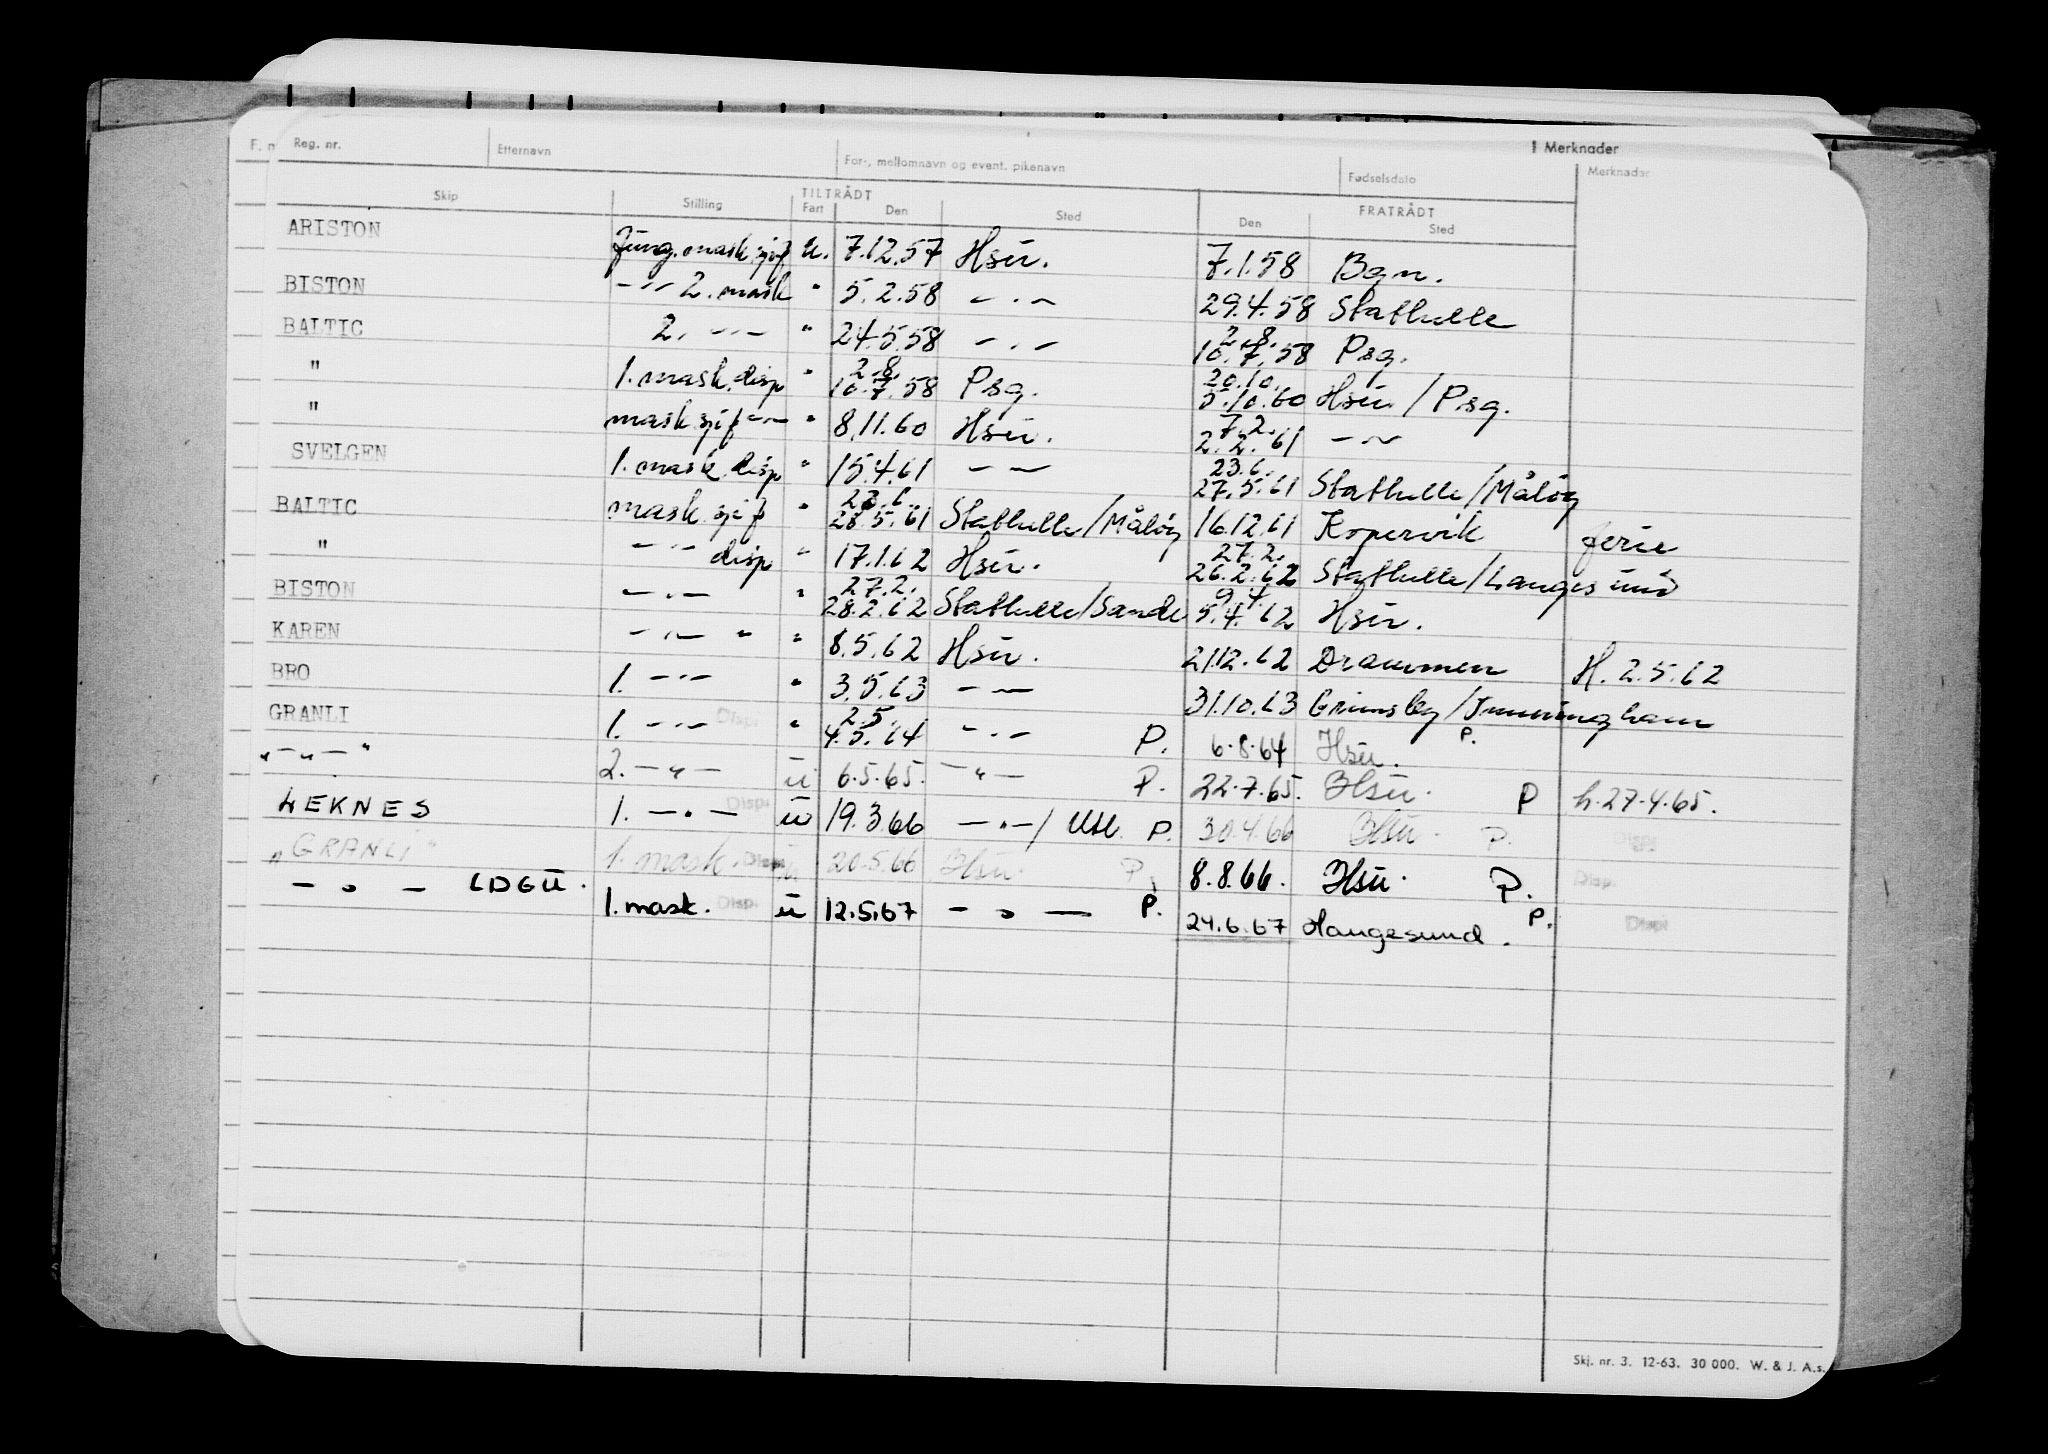 F. n Reg. nr. Etternavn For-, mellomnavn og event. pikenavn Fødselsdato Merknader
Merknader
Skip Stilling TILTRÅDT Fart Den Sted FRATRÅDT Den Sted
ARISTON Fung. mask.sjef u. 7.12.57 Hsu. 7.1.58 Bgn.
BISTON -"- 2. mask " 5.2.58 -"- 29.4.58 Stathelle
BALTIC 2. -"- " 24.5.58 -"- 2.8. 10.7.58 Psg.
" 1. mask. disp " 2.8. 10.7.58 Psg. 20.10. 5.10.60 Hsu / Psg.
" mask sjef -"- " 8.11.60 Hsu. 7.2. 2.2.61 -"-
SVELGEN 1. mask. disp " 15.4.61 -"- 23.6. 27.5.61 Stathelle/Måløy
BALTIC mask. sjef " 23.6. 28.5.61 Stathelle/Måløy 16.12.61 Kopervik ferie
" -"- disp " 17.1.62 Hsu. 27.2. 26.2.62 Stathelle/Langesund
BISTON -"- " 27.2. 28.2.62 Stathelle/Sande 9.4. 5.4.62 Hsu.
KAREN -"- " " 8.5.62 Hsu. 21.12.62 Drammen H. 2.5.62
BRO 1. -"- " 3.5.63 -"- 31.10.63 Grimsby/Immingham
GRANLI 1. -"- Disp. " 2.5. 4.5.64 -"- P. 6.8.64 Hsu. P.
"-"-" 2. -"- ü 6.5.65. -"- P. 22.7.65. Hsu. P h. 27.4.65.
LEKNES 1. -"- Disp. ü 19.3.66 -"-/ Utl. P. 30.4.66 Hsu. P.
"GRANLI" 1. mask. Disp. ü 20.5.66 Hsu. P. 8.8.66. Hsu. P. Disp.
-"- LDGU. 1. mask. Disp. ü 12.5.67 -"- P. 24.6.67 Haugesund. P. Disp.
Skj. nr. 3. 12-63. 30 000. W. & J. A.s.